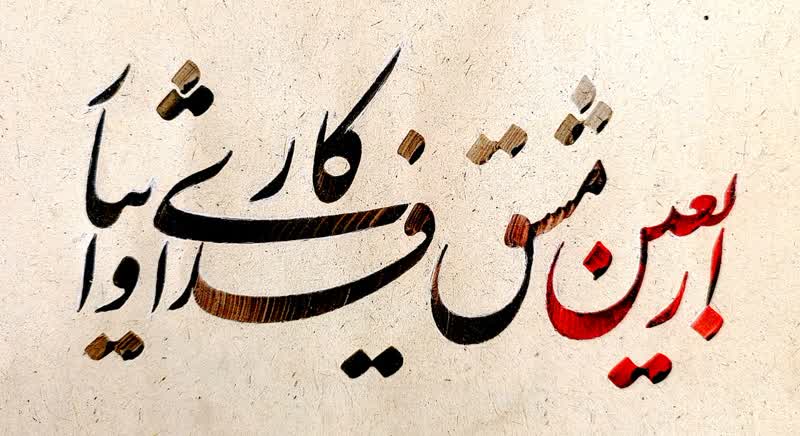 اربعین مشق فداکاری و ایثار